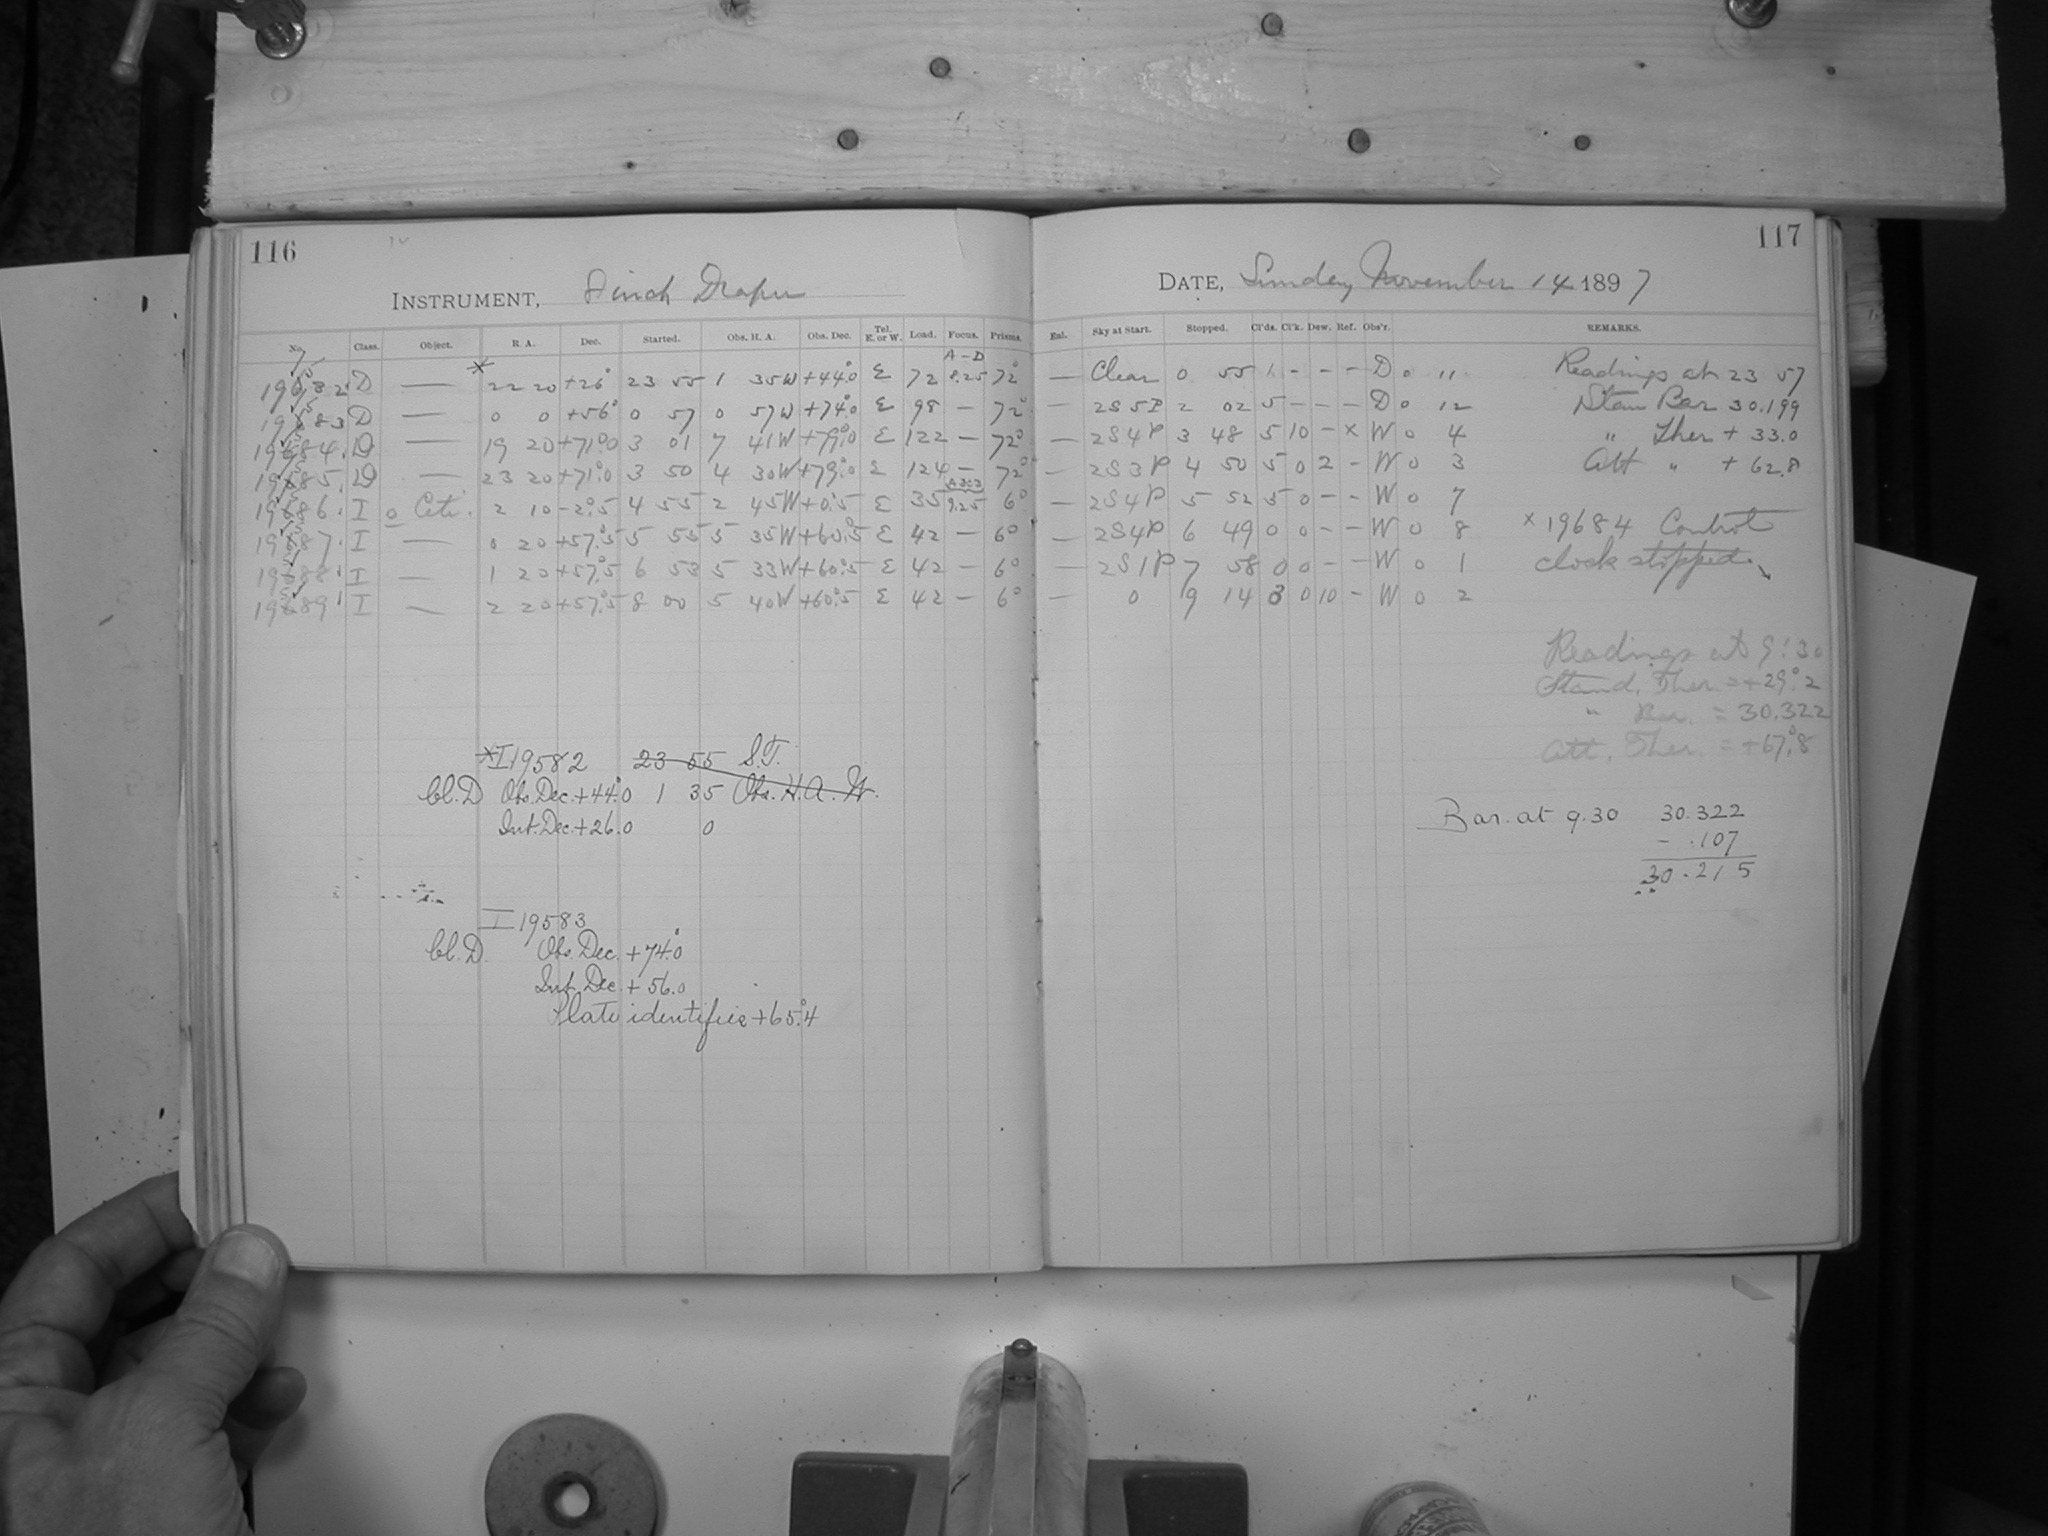 116
INSTRUMENT, 8 inch Draper
No. Class. Object. R. A. Dec. Started. Obs. H. A. Obs. Dec. Tel. E. or W. Load. Focus. Prisms.
19582 D — * 22 20 +26° 23 55 1 35W +44.°0 E 72 A-D 8.25 72°
19583 D — 0 0 +56° 0 57 0 57W +74.°0 E 98 — 72°
19584. D — 19 20 +71.°0 3 01 7 41W +79.°0 E 122 — 72°
19585. D — 23 20 +71.°0 3 50 4 30W +79.°0 E 124 — 72°
19586. I o Ceti. 2 10 -2.°5 4 55 2 45W +0.°5 E 35 9.25 6°
19587. I — 0 20 +57.°5 5 55 5 35W +60.°5 E 42 — 6°
19588. I — 1 20 +57.°5 6 53 5 33W +60.°5 E 42 — 6°
19589. I — 2 20 +57.°5 8 00 5 40W +60.°5 E 42 — 6°
*I 19582 23 55 S.T.
Cl. D Obs. Dec. +44.°0 1 35 Obs. H.A. W.
Int. Dec. +26.0 0
I 19583
Cl. D. Obs. Dec. +74.°0
Int. Dec. +56.0
Plate identifies +65.°4
117
DATE, Sunday November 14 1897
Enl. Sky at Start. Stopped. Cl'ds. Cl'k. Dew. Ref. Obs'r. REMARKS.
— Clear 0 55 1 - - - D 0 11 Readings at 23 57
— 2S5P 2 02 5 - - - D 0 12 Stan Bar 30.199
— 2S4P 3 48 5 10 - x W 0 4 " Ther + 33.0
— 2S3P 4 50 5 0 2 - W 0 3 Att " + 62.8
— 2S4P 5 52 5 0 - - W 0 7
— 2S4P 6 49 0 0 - - W 0 8 x 19684 Control
— 2S1P 7 58 0 0 - - W 0 1 clock stopped.
— 0 9 14 3 0 10 - W 0 2
Readings at 9:30
Stand. Ther. = +29.°2
" Bar. = 30.322
Att. Ther. = +67.°8
Bar. at 9.30 30.322
- .107
30.215